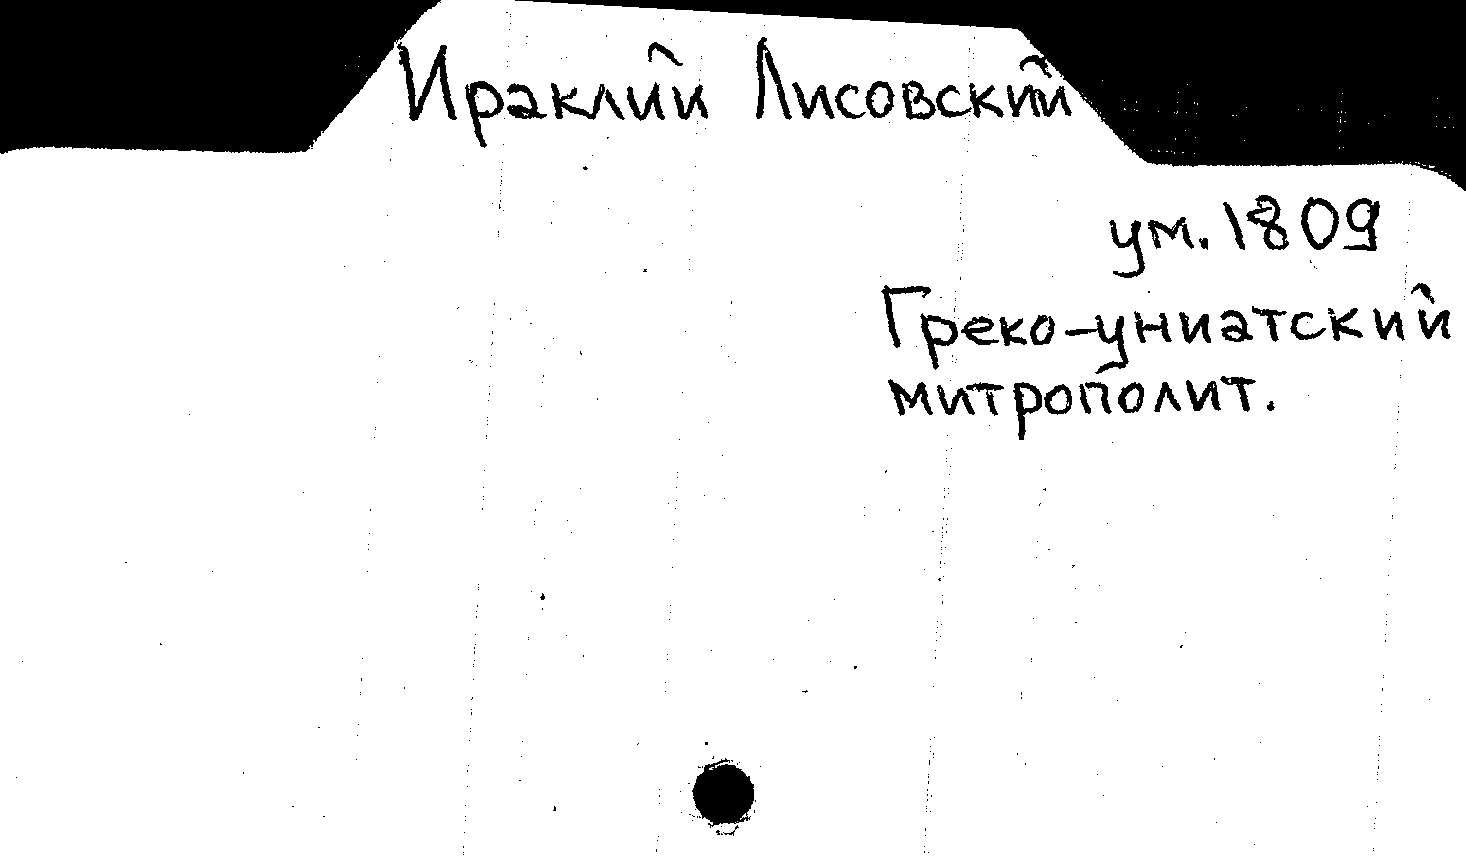 Ираклий Лисовский
ум. 1809
Греко-униатский
митрополит.